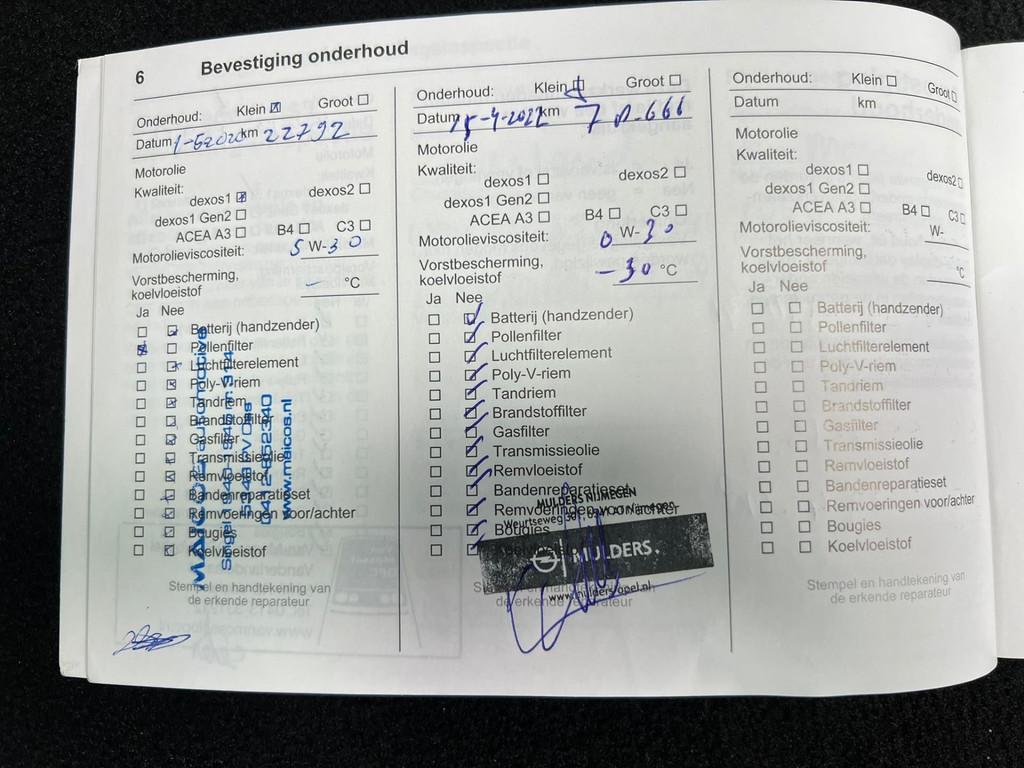 6 Bevestiging onderhoud
Onderhoud: Klein Groot
Datum km 22792
Motorolie
Kwaliteit:
dexos1 dexos2
dexos1 Gen2
ACEA A3 B4 C3
Motorolieviscositeit: 5 W-30
Vorstbescherming,
koelvloeistof - °C
Ja Nee
Batterij (handzender)
Pollenfilter
Luchtfilterelement
Poly-V-riem
Tandriem
Brandstoffilter
Gasfilter
Transmissieolie
Remvloeistof
Bandenreparatieset
Remvoeringen voor/achter
Bougies
Koelvloeistof
0412-652340
www.maicos.nl
Stempel en handtekening van
de erkende reparateur
Onderhoud: Klein Groot
Datum 15-4-2022 km
Motorolie
Kwaliteit:
dexos1 dexos2
dexos1 Gen2
ACEA A3 B4 C3
Motorolieviscositeit: 0 W-30
Vorstbescherming,
koelvloeistof -30 °C
Ja Nee
Batterij (handzender)
Pollenfilter
Luchtfilterelement
Poly-V-riem
Tandriem
Brandstoffilter
Gasfilter
Transmissieolie
Remvloeistof
Bandenreparatieset
Remvoeringen voor/achter
Bougies
Koelvloeistof
MULDERS NIJMEGEN
Weurtseweg
MULDERS.
www.mulders-opel.nl
de erkende reparateur
Onderhoud: Klein Groot
Datum km
Motorolie
Kwaliteit:
dexos1 dexos2
dexos1 Gen2
ACEA A3 B4 C3
Motorolieviscositeit: W-
Vorstbescherming,
koelvloeistof °C
Ja Nee
Batterij (handzender)
Pollenfilter
Luchtfilterelement
Poly-V-riem
Tandriem
Brandstoffilter
Gasfilter
Transmissieolie
Remvloeistof
Bandenreparatieset
Remvoeringen voor/achter
Bougies
Koelvloeistof
Stempel en handtekening van
de erkende reparateur